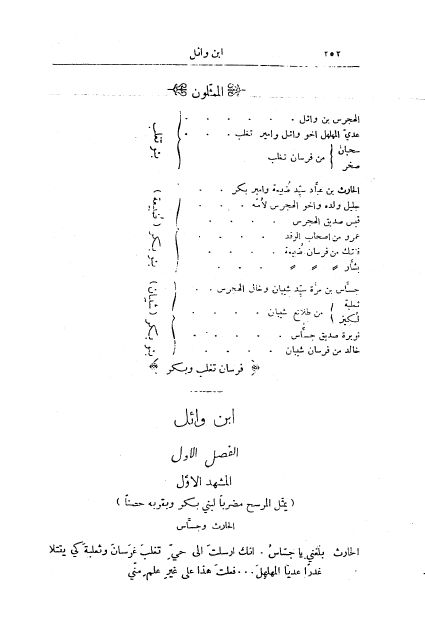 ٢٥٢ ابن وائل
الممثلون
الهجرس بن وائل . . . . .
عديّ المهلهل اخو وائل وامير تغلب . . .
سحبان
صخر
من فرسان تغلب
بنو تغلب
الحارث بن عبَّاد سيّد ضُبَيعة وامير بكر . . .
جليل ولده واخو الهجرس لأُمّه . . .
قيس صديق الهجرس . . . .
عمرو من اصحاب الوفد . . .
فاتك من فرسان ضُبيعة . . .
بشَّار 〃 〃 〃 . .
بنو بكر (ضُبيعة)
جسَّاس بن مرَّة سيّد شيبان وخال الهجرس . .
ثعلبة
من طلائع شيبان . . .
نويرة صديق جسَّاس . . . . .
خالد من فرسان شيبان . . . .
بنو بكر (شيبان)
فرسان تغلب وبكر
ابن وائل
الفصل الاول
المشهد الاوَّل
( يمثّل المرسح مضرباً لبني بكر وبقربه حصناً )
الحارث وجسَّاس
الحارث بلغني يا جسَّاسُ . انك ارسلتَ الى حيِّ تغلبَ غَرسانَ وثعلبةَ كي يقتلا
غدرًا عديَّا المهلهلَ ... فعلتَ هذا على غيرِ علمٍ منّي